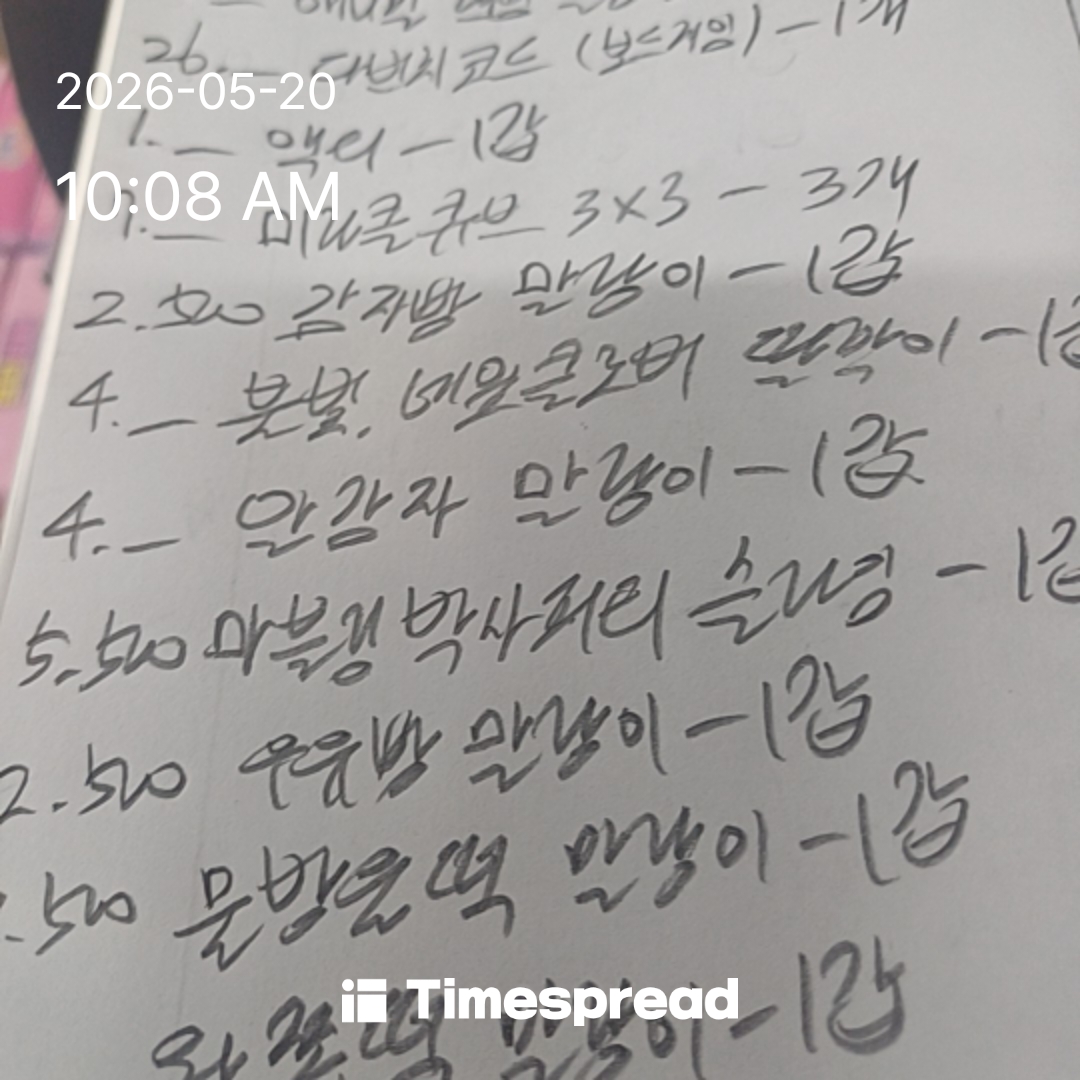 26.— 다빈치코드 (보드게임) – 1개
2026-05-20
1.— 액티 – 1갑
10:08 AM
미라클큐브 3×3 – 3개
2.500 감자빵 말랑이 – 1갑
4.— 붓벌, 네잎클로버 딸깍이 – 1갑
4.— 알감자 말랑이 – 1갑
5.500 마블링 박사퍼티 슬라임 – 1갑
2.500 우유빵 말랑이 – 1갑
.500 물방울떡 말랑이 – 1갑
말랑이 – 1갑
Timespread